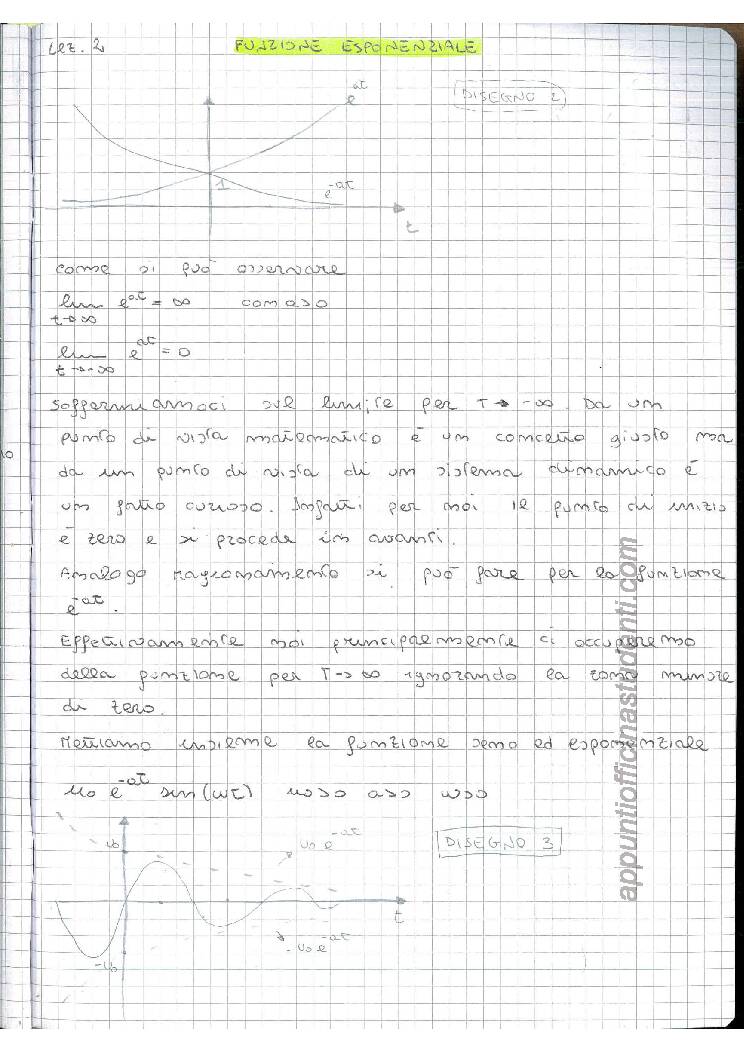 Lez. 2
FUNZIONE ESPONENZIALE
DISEGNO 2
e^at
1
e^-at
t
come si può osservare
lim e^at = ∞ con a>0
t→∞
lim e^at = 0
t→-∞
Soffermiamoci sul limite per T→ -∞. Da un
punto di vista matematico è un concetto giusto ma
da un punto di vista di un sistema dinamico è
un fatto curioso. Infatti per noi il punto di inizio
è zero e si procede in avanti.
Analogo ragionamento si può fare per la funzione
e^-at.
Effettivamente noi principalmente ci occuperemo
della funzione per T→∞ ignorando la zona minore
di zero.
Mettiamo insieme la funzione seno ed esponenziale
u₀ e^-at sin(ωt) u₀>0 a>0 ω>0
u₀
u₀ e^-at
DISEGNO 3
t
-u₀ e^-at
-u₀
appuntiofficinastudenti.com